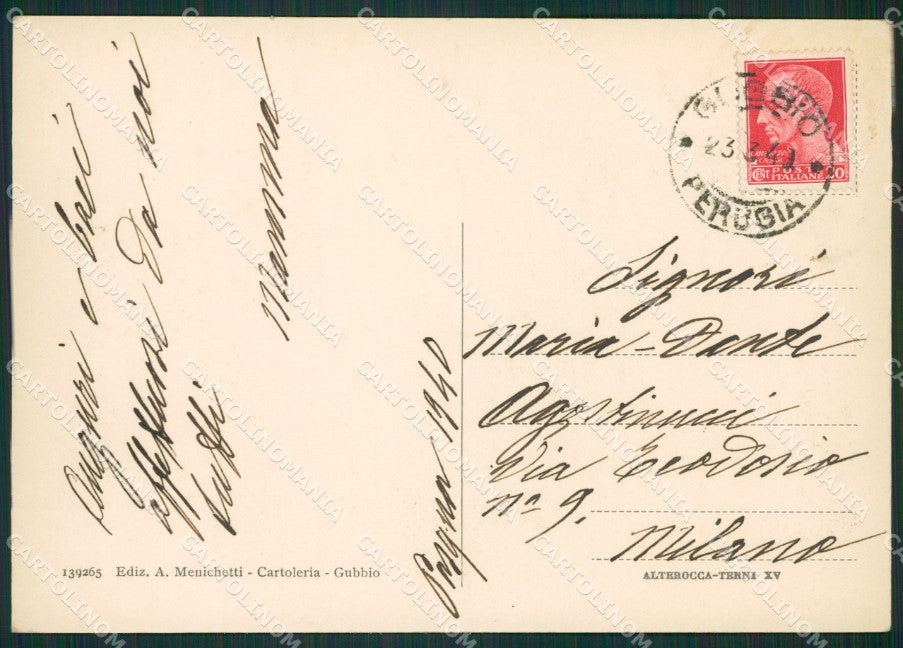 Auguri e baci
affettuosi da noi
tutti
Mamma
1940
GUBBIO
23
PERUGIA
CENT POSTE 20
ITALIANE
Signori
Maria-Dante
Agostinucci
Via Teodosio
nº 9.
Milano
139265 Ediz. A. Menichetti - Cartoleria - Gubbio
ALTEROCCA-TERNI XV
CARTOLINOMANIA